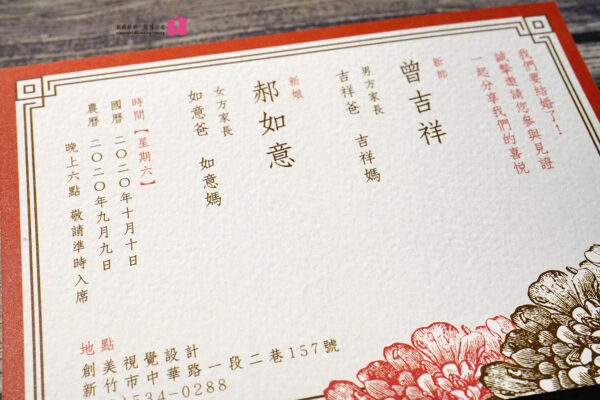 我們要結婚了!
誠摯邀請您參與見證
一起分享我們的喜悅
新郎
曾吉祥
男方家長
吉祥爸 吉祥媽
新娘
郝如意
女方家長
如意爸 如意媽
時間【星期六】
國曆 二〇二〇年十月十日
農曆 二〇二〇年九月九日
晚上六點 敬請準時入席
地點
創美視覺設計
新竹市中華路一段二巷157號
534-0288